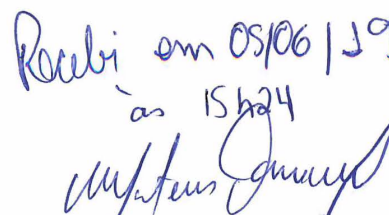 Recebi em 05/06/19
às 15h24
Mateus